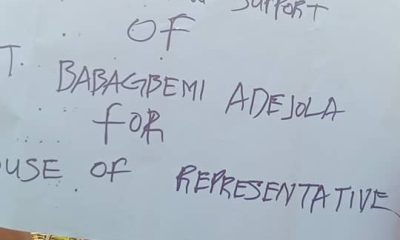 SUPPORT
OF
T. BABAGBEMI ADEJOLA
foR
OUSE OF REPRESENTATIVE